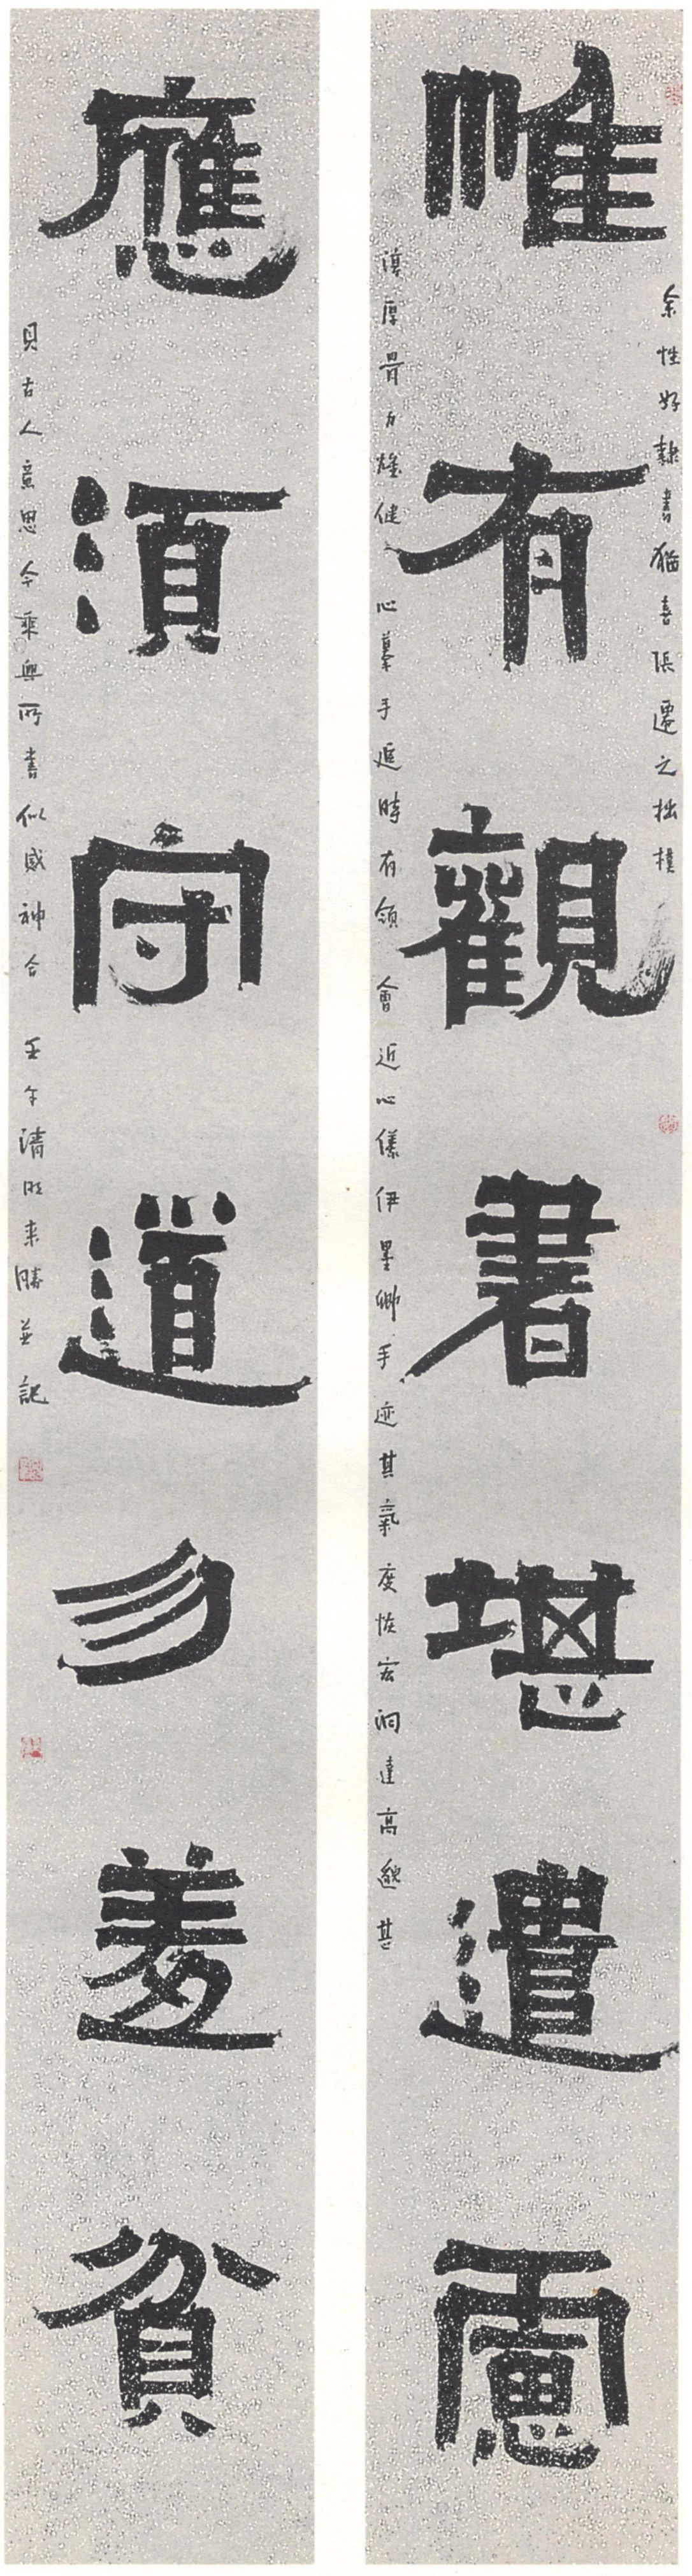 惟有觀書堪遣慮
應須守道勿羞貧
余性好隸書猶喜張遷之拙樸
淳厚骨力雄健心摹手追時有領會近心儀伊墨卿手迹其氣度恢宏洞達高邈甚
具古人意思今乘興所書似感神合壬午清明來勝並記